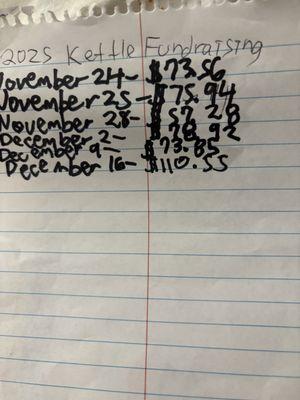 2025 Kettle Fundraising
November 24- $73.56
November 25- $75.94
November 28- $57.28
December 2- $78.92
December 9- $73.85
December 16- $110.55